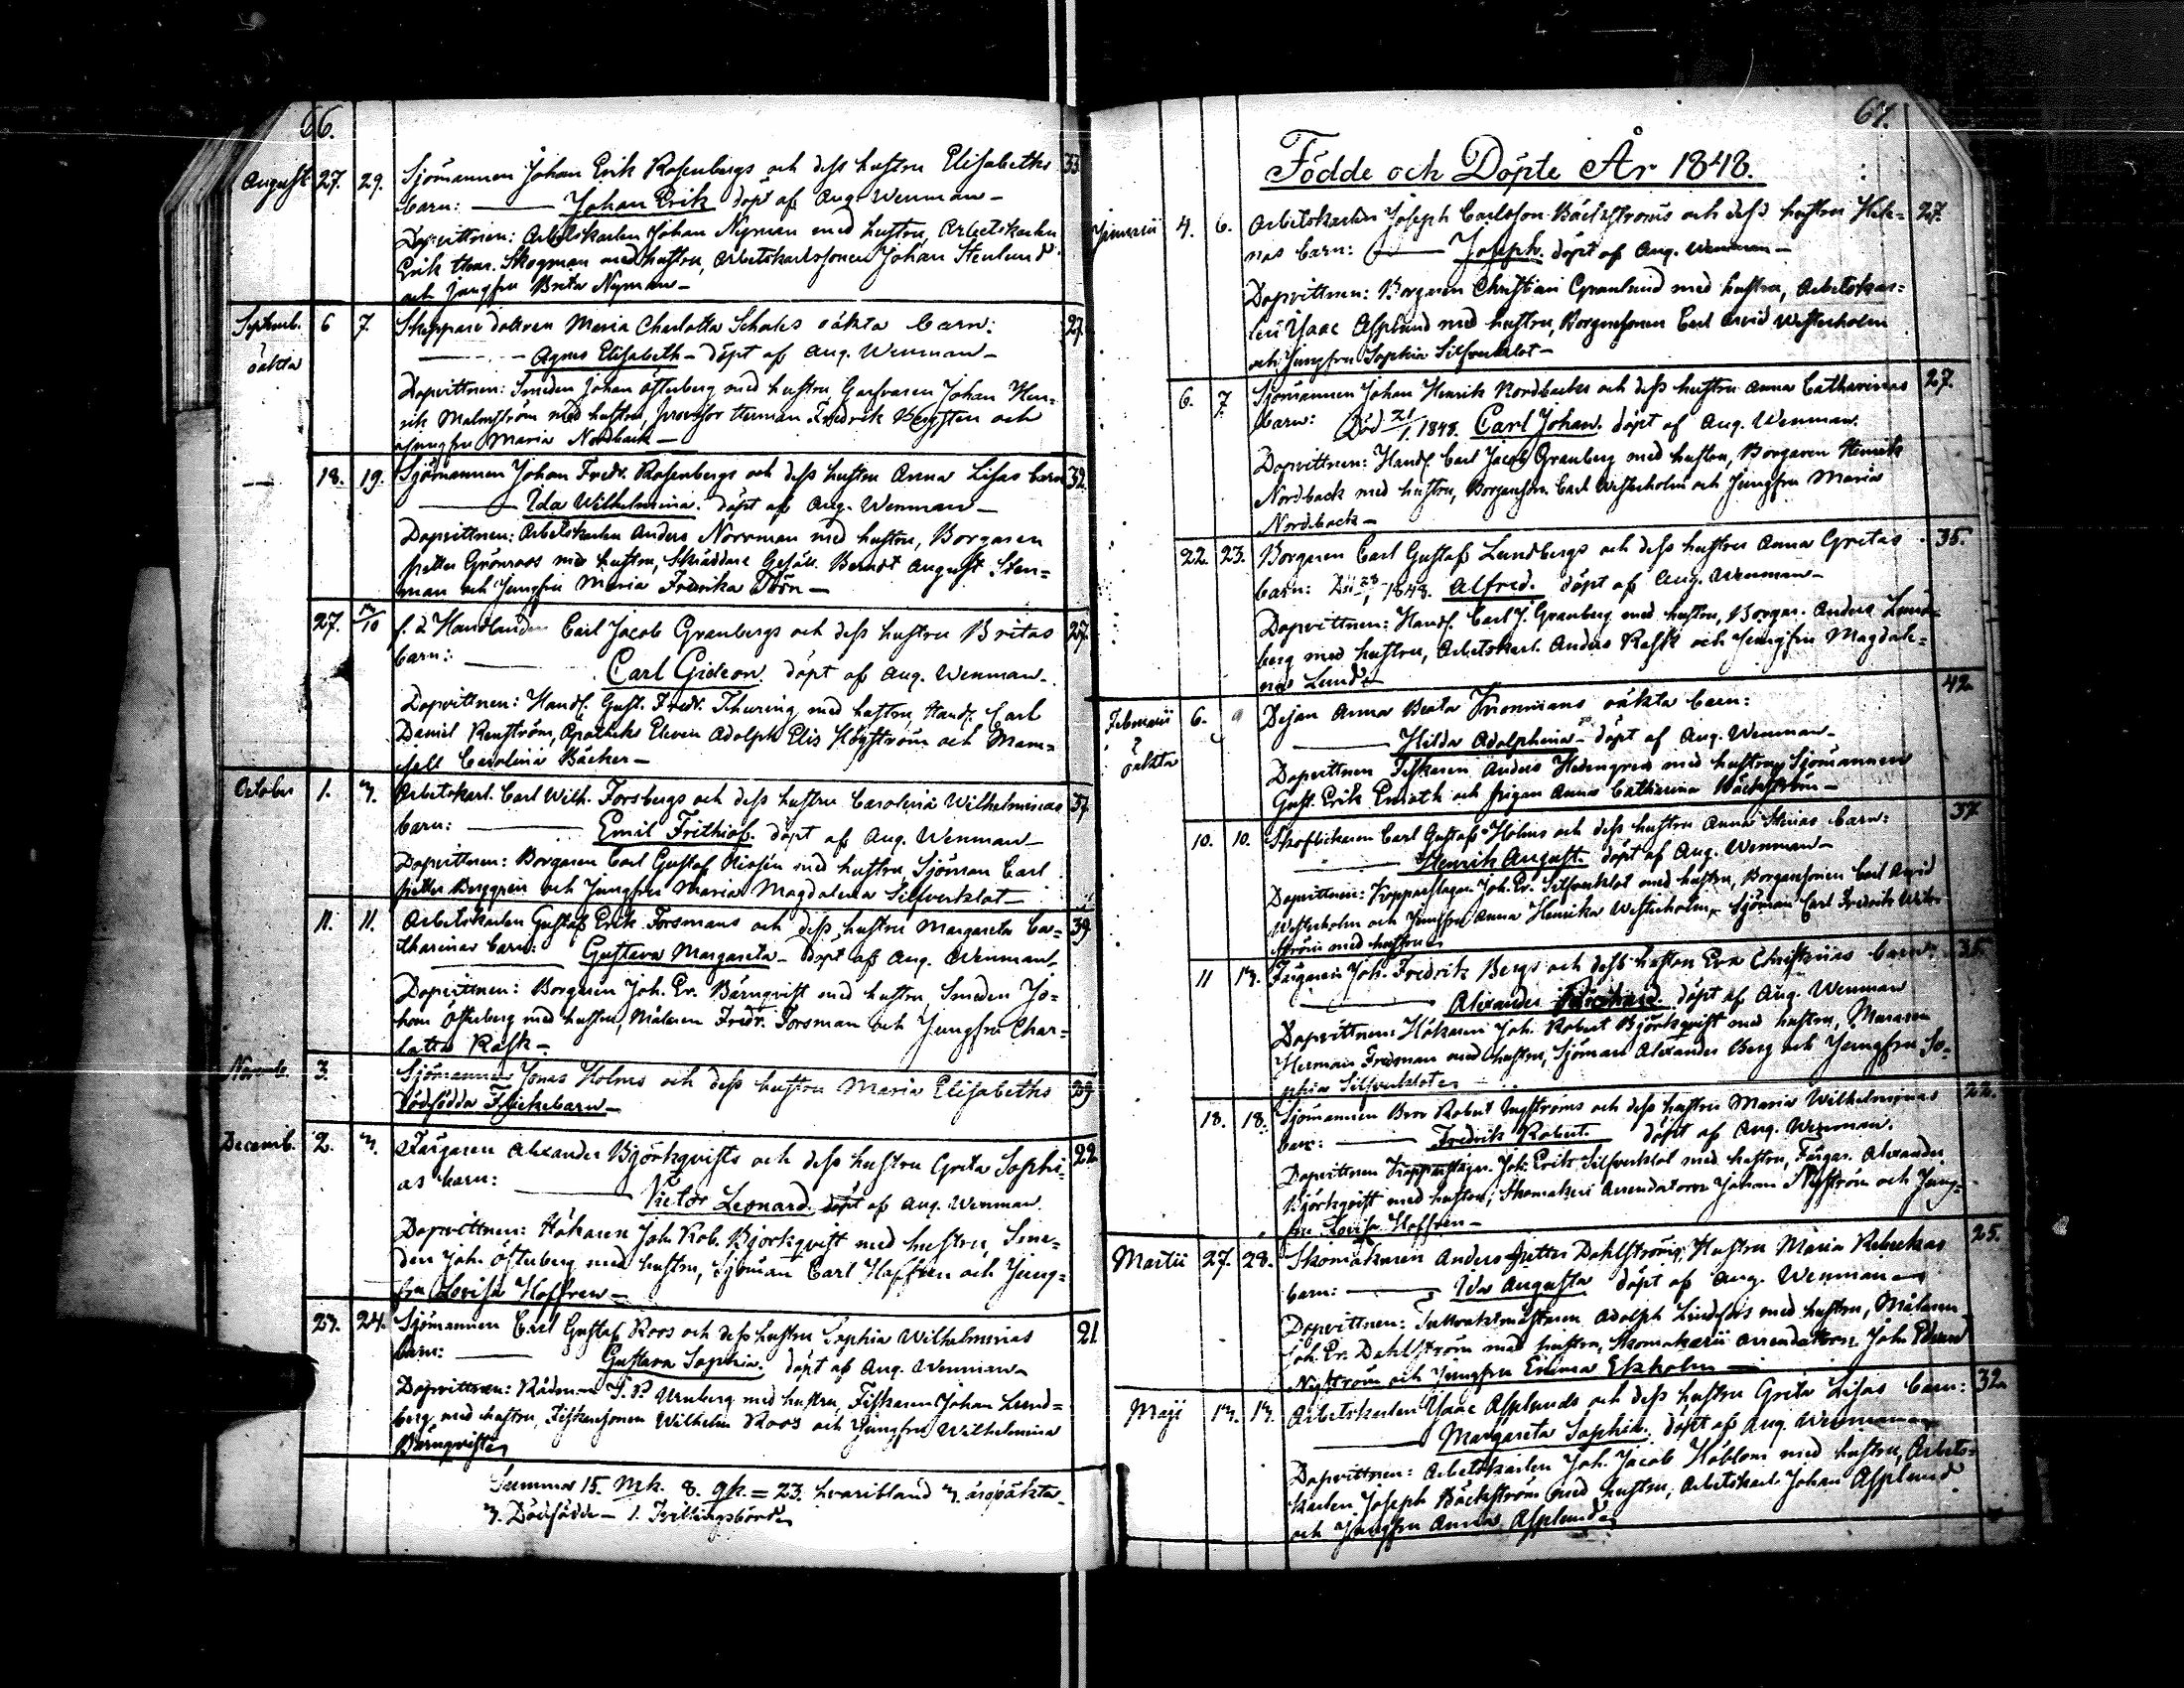 66.
August 27. 29. Sjömannen Johan Erik Rosenbergs och dess hustru Elisabeths 33
barn: — Johan Erik döpt af Aug. Wenman —
Dopvittnen: Arbetskarlen Johan Nyman med hustru, Arbetskarlen
Erik Skogman med hustru, Arbetskarlssonen Johan Stenlund
och Jungfru Brita Nyman —
Septemb. 6 7. Skeppare dottren Maria Charlotta oäkta barn: 27.
oäkta — Agnes Elisabeth — döpt af Aug. Wenman —
Dopvittnen: Smeden Johan Österberg med hustru, Garfvaren Johan Hen-
rik Malmström med hustru, provisor Herman Fredrik och
Jungfru Maria Nordback —
— 18. 19. Sjömannen Johan Fredr. Rosenbergs och dess hustru Anna Lisas barn 32.
— Ida Wilhelmina. döpt af Aug. Wenman —
Dopvittnen: Arbetskarlen Anders Norrman med hustru, Borgaren
Petter Grönroos med hustru, Skräddare Gesäll. Berndt August Sten-
man och Jungfru Maria Fredrika Törn —
27. f. d. Handlanden Carl Jacob Granbergs och dess hustru Britas 27.
barn: — Carl Gideon. döpt af Aug. Wenman.
Dopvittnen: Handl. Gust. Fredr. Thuring med hustru, Handl. Carl
Daniel Renström, Apotheks Eleven Adolph Elis Högström och Mam-
sell Carolina Bäcker —
October 1. 3. Arbetskarl. Carl Wilh. Forsbergs och dess hustru Carolina Wilhelminas 37.
barn: — Emil Frithiof. döpt af Aug. Wenman —
Dopvittnen: Borgaren Carl Gustaf med hustru, Sjöman Carl
Petter och Jungfru Maria Magdalena Silfverklot —
11. 11. Arbetskarlen Gustaf Erik Forsmans och dess hustru Margareta Ca- 39.
tharinas barn: Gustava Margareta — döpt af Aug. Wenman
Dopvittnen: Borgaren Joh. Er. Bärnqvist med hustru, Smeden Jo-
han Österberg med hustru, Målaren Fredr. Forsman och Jungfru Char-
lotta Rask —
Novemb. 3. Sjömannen Jonas Holms och dess hustru Maria Elisabeths 39
Dödfödda Flickebarn —
Decemb. 2. 3. Färgaren Alexander Björkqvists och dess hustru Greta Sophi- 22.
as barn: — Victor Leonard. döpt af Aug. Wenman.
Dopvittnen: Hökaren Joh. Rob. Björkqvist med hustru, Sme-
den Joh. Österberg med hustru, Sjöman Carl Hoffren och Jung-
fru Lovisa Hoffren —
23. 24. Sjömannen Carl Gustaf Roos och dess hustru Sophia Wilhelminas 21.
barn: — Gustava Sophia. döpt af Aug. Wenman —
Dopvittnen: Rådman med hustru, Fiskaren Johan Lund-
berg med hustru, Fiskaresonen Wilhelm Roos och Jungfru Wilhelmina
Bärnqvist
Summa 15. Mk. 8. qk. = 23. hvaribland 3. äro oäkta
3. Dödfödde — 1. Tvillingsbörd
67.
Födde och Döpte År 1848.
Januarii 4. 6. Arbetskarlen Joseph Carlsson Bäckströms och dess hustru Hele- 27.
nas barn: — Joseph. döpt af Aug. Wenman —
Dopvittnen: Borgaren Christian Granlund med hustru, Arbetskar-
len Isaac Asplund med hustru, Borgaresonen Carl Arvid Westerholm
och Jungfru Sophia Silfverklot —
6. 7. Sjömannen Johan Henrik Nordbacks och dess hustru Anna Catharinas 27.
barn: Död 21/1 1848. Carl Johan. döpt af Aug. Wenman.
Dopvittnen: Handl. Carl Jacob Granberg med hustru, Borgaren Henrik
Nordback med hustru, Borgareson. Carl Westerholm och Jungfru Maria
Nordback —
22. 23. Borgaren Carl Gustaf Lundbergs och dess hustru Anna Gretas 35.
barn: 1848. Alfred. döpt af Aug. Wenman —
Dopvittnen: Handl. Carl J. Granberg med hustru, Borgar. Anders Lund-
berg med hustru, Arbetskarl. Anders Rask och Jungfru Magdale-
na Lund
Februarii 6. 9 Dejan Anna Beata oäkta barn: 42.
oäkta — Hilda Adolphina — döpt af Aug. Wenman —
Dopvittnen Fiskaren Anders Hedengren med hustru, Sjömannen
Gust. Erik och pigan Anna Catharina Bäckström —
10. 10. Carl Gustaf Holms och dess hustru Anna Stinas barn: 37
— Henrik August. döpt af Aug. Wenman —
Dopvittnen: Kopparslagar. Joh. Er. Silfverklot med hustru, Borgaresonen Carl Arvid
Westerholm och Jungfru Anna Henrika Westerholm, Sjöman Carl Fredrik
ström med hustru
11 13. Färgaren Joh. Fredrik Bergs och dess hustru Eva Christinas barn 35.
— Alexander döpt af Aug. Wenman
Dopvittnen: Hökaren Joh. Robert Björkqvist med hustru, Muraren
Herman Fredman med hustru, Sjöman Alexander Berg och Jungfru So-
phia Silfverklot
18. 18. Sjömannen Robert Nyströms och dess hustru Maria Wilhelminas 22.
barn: — Fredrik Robert. döpt af Aug. Wenman.
Dopvittnen Kopparslagar. Joh. Erik Silfverklot med hustru, Färgar. Alexander
Björkqvist med hustru, Skomakeri Arrendatorn Johan Nyström och Jung-
fru Lovisa Hoffren —
Martii 27. 28. Skomakaren Anders Petter Dahlströms, Hustru Maria Rebeckas 25.
barn: — Ida Augusta döpt af Aug. Wenman —
Dopvittnen: Adolph Lindfors med hustru, Målaren
Joh. Er. Dahlström med hustru, Skomakeri arrendatorn Joh. Edvard
Nyström och Jungfru Emma Ekholm —
Maji 13. 13. Arbetskarlen Isaac Asplunds och dess hustru Greta Lisas barn: 32.
— Margareta Sophia. döpt af Aug. Wenman
Dopvittnen: Arbetskarlen Joh. Jacob Höblom med hustru, Arbets-
karlen Joseph Bäckström med hustru, Arbetskarl. Johan Asplund
och Jungfru Anna Asplund